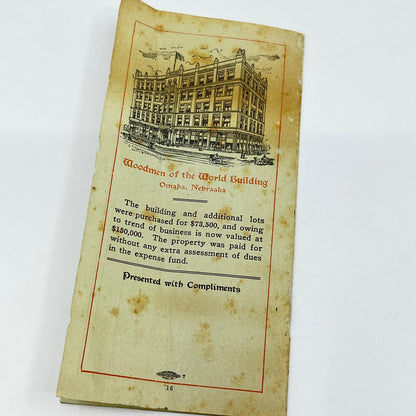 Woodmen of the World Building
Omaha, Nebraska
The building and additional lots
were purchased for $73,500, and owing
to trend of business is now valued at
$150,000. The property was paid for
without any extra assessment of dues
in the expense fund.
Presented with Compliments
7
16